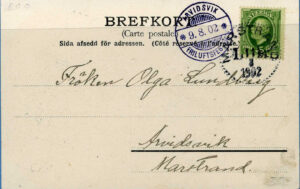 BREFKORT
(Carte postale.)
Sida afsedd för adressen. (Côté réservé à l'adresse.)
ARVIDSVIK
9.8.02
Fröken Olga Lundberg
Arvidsvik
Marstrand.
1902